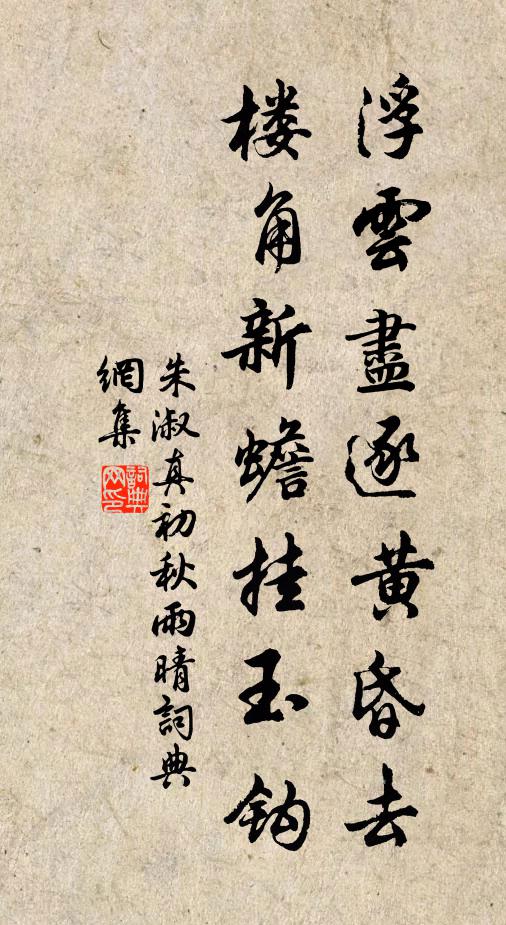 浮雲盡逐黄昏去
楼角新蟾挂玉钩
朱淑真初秋雨晴詞典
網集
詞典
网印